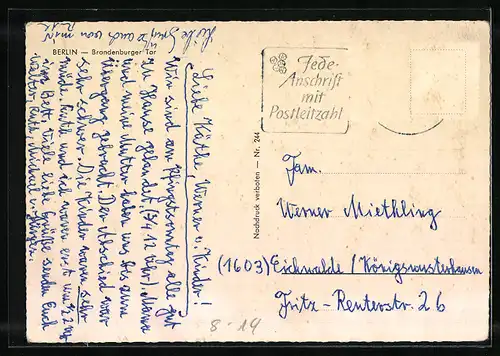 BERLIN — Brandenburger Tor
Liebe Käthe, Werner u. Kinder!
Wir sind am Pfingstsonntag alle gut
zu Hause gelandet (3/4 12 Uhr). Mama
und meine Mutter haben uns bis zum
Übergang gebracht. Der Abschied war
sehr schwer. Die Kinder waren sehr
müde. Ruth und ich waren erst um 1/2 2 Uhr
im Bett. Viele liebe Grüße senden Euch
Walter, Ruth, Michael u. Jürgen.
Liebe Grüße auch von mir
Nachdruck verboten — Nr. 244
Jede
Anschrift
mit
Postleitzahl
Fam.
Werner Miethling
(1603) Eichwalde / Königswusterhausen
Fritz-Reuterstr. 26
8-14